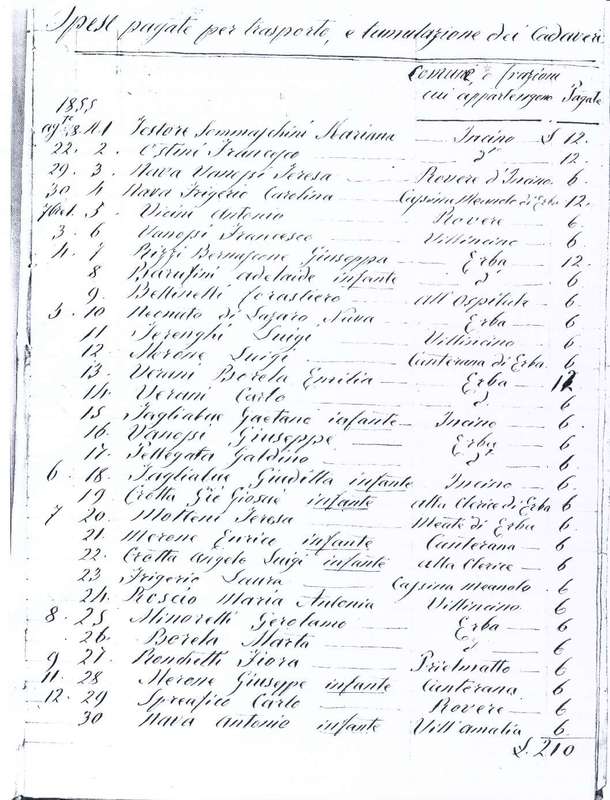 Spese pagate per trasporto, e tumulazione dei Cadaveri
Comune, o frazione
cui appartengono Pagate
1855
ag.to 8. N. 1 Testore Sommaschini Mariana Incino £ 12.
22. 2. Ostini Francesco d° 12.
29. 3. Nava Vanossi Teresa Rovere d'Incino 6.
30 4 Nava Frigerio Carolina Cassina Meanolo di Erba 12.
7bre 1. 5. Vicini Antonio Rovere 6
3. 6 Vanossi Francesco Villincino 6
4. 7 Rizzi Bernascone Giuseppa Erba 12
8 Parafini Adelaide infante d° 6
9. Bettinelli forastiero all'Ospitale 6
5. 10 Neonato di Lazaro Nava Erba 6
11 Terenghi Luigi Villincino 6
12 Merone Luigi Canterana di Erba 6
13 Verani Borela Emilia Erba 12
14 Verani Carlo d° 6
15 Tagliabue Gaetano infante Incino 6
16. Vanossi Giuseppe Erba 6
17. Pellegata Galdino d° 6
6 18. Tagliabue Giuditta infante Incino 6
19 Crotta Giosuè infante alla Clerice di Erba 6
7 20. Molteni Teresa Meate di Erba 6
21. Merone Enrico infante Canterana 6
22. Crotta Angelo Luigi infante alla Clerice 6
23 Frigerio Laura Cassina Meanolo 6
24. Roscio Maria Antonia Villincino 6
8. 25 Minoretti Gerolamo Erba 6
26. Borela Marta d° 6
9 27. Ronchetti Fiora Prielmatto 6
11. 28 Merone Giuseppe infante Canterana 6
12. 29 Spreafico Carlo Rovere 6
30 Nava Antonio infante Vill'amalia 6.
£. 210